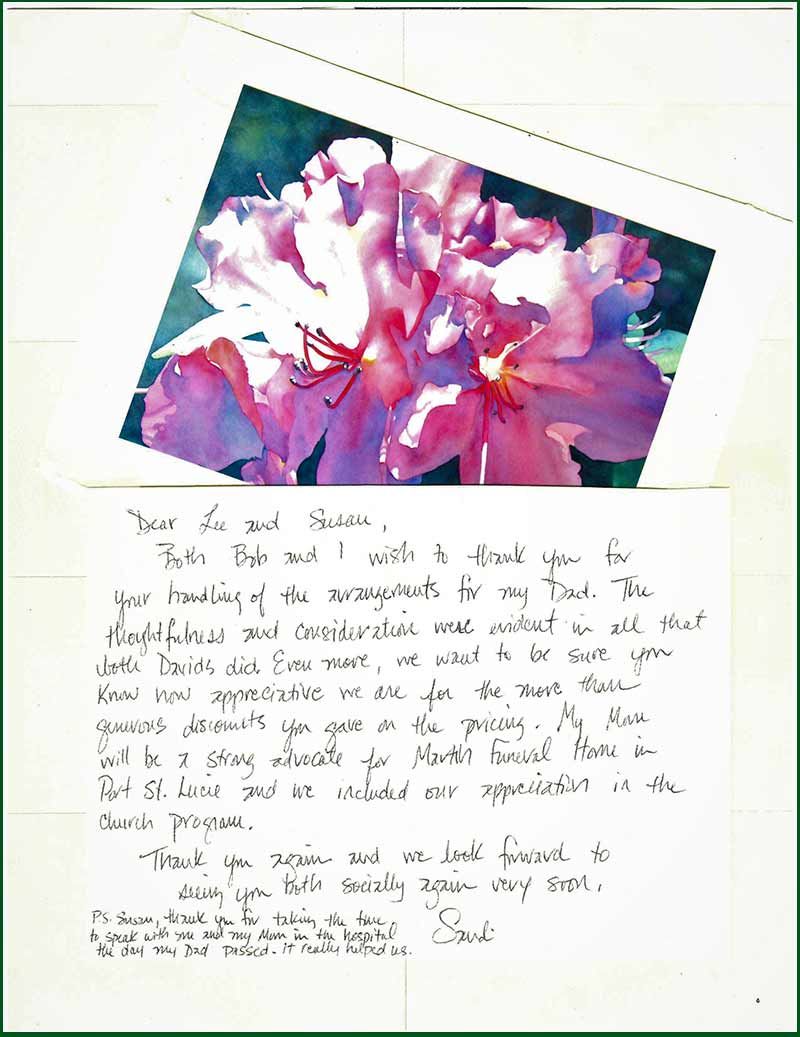 Dear Lee and Susan,
Both Bob and I wish to thank you for
your handling of the arrangements for my Dad. The
thoughtfulness and consideration were evident in all that
both Davids did. Even more, we want to be sure you
know how appreciative we are for the more than
generous discounts you gave on the pricing. My Mom
will be a strong advocate for Martin Funeral Home in
Port St. Lucie and we included our appreciation in the
church program.
Thank you again and we look forward to
seeing you both socially again very soon.
Sandi
P.S. Susan, thank you for taking the time
to speak with me and my Mom in the hospital
the day my Dad passed. it really helped us.